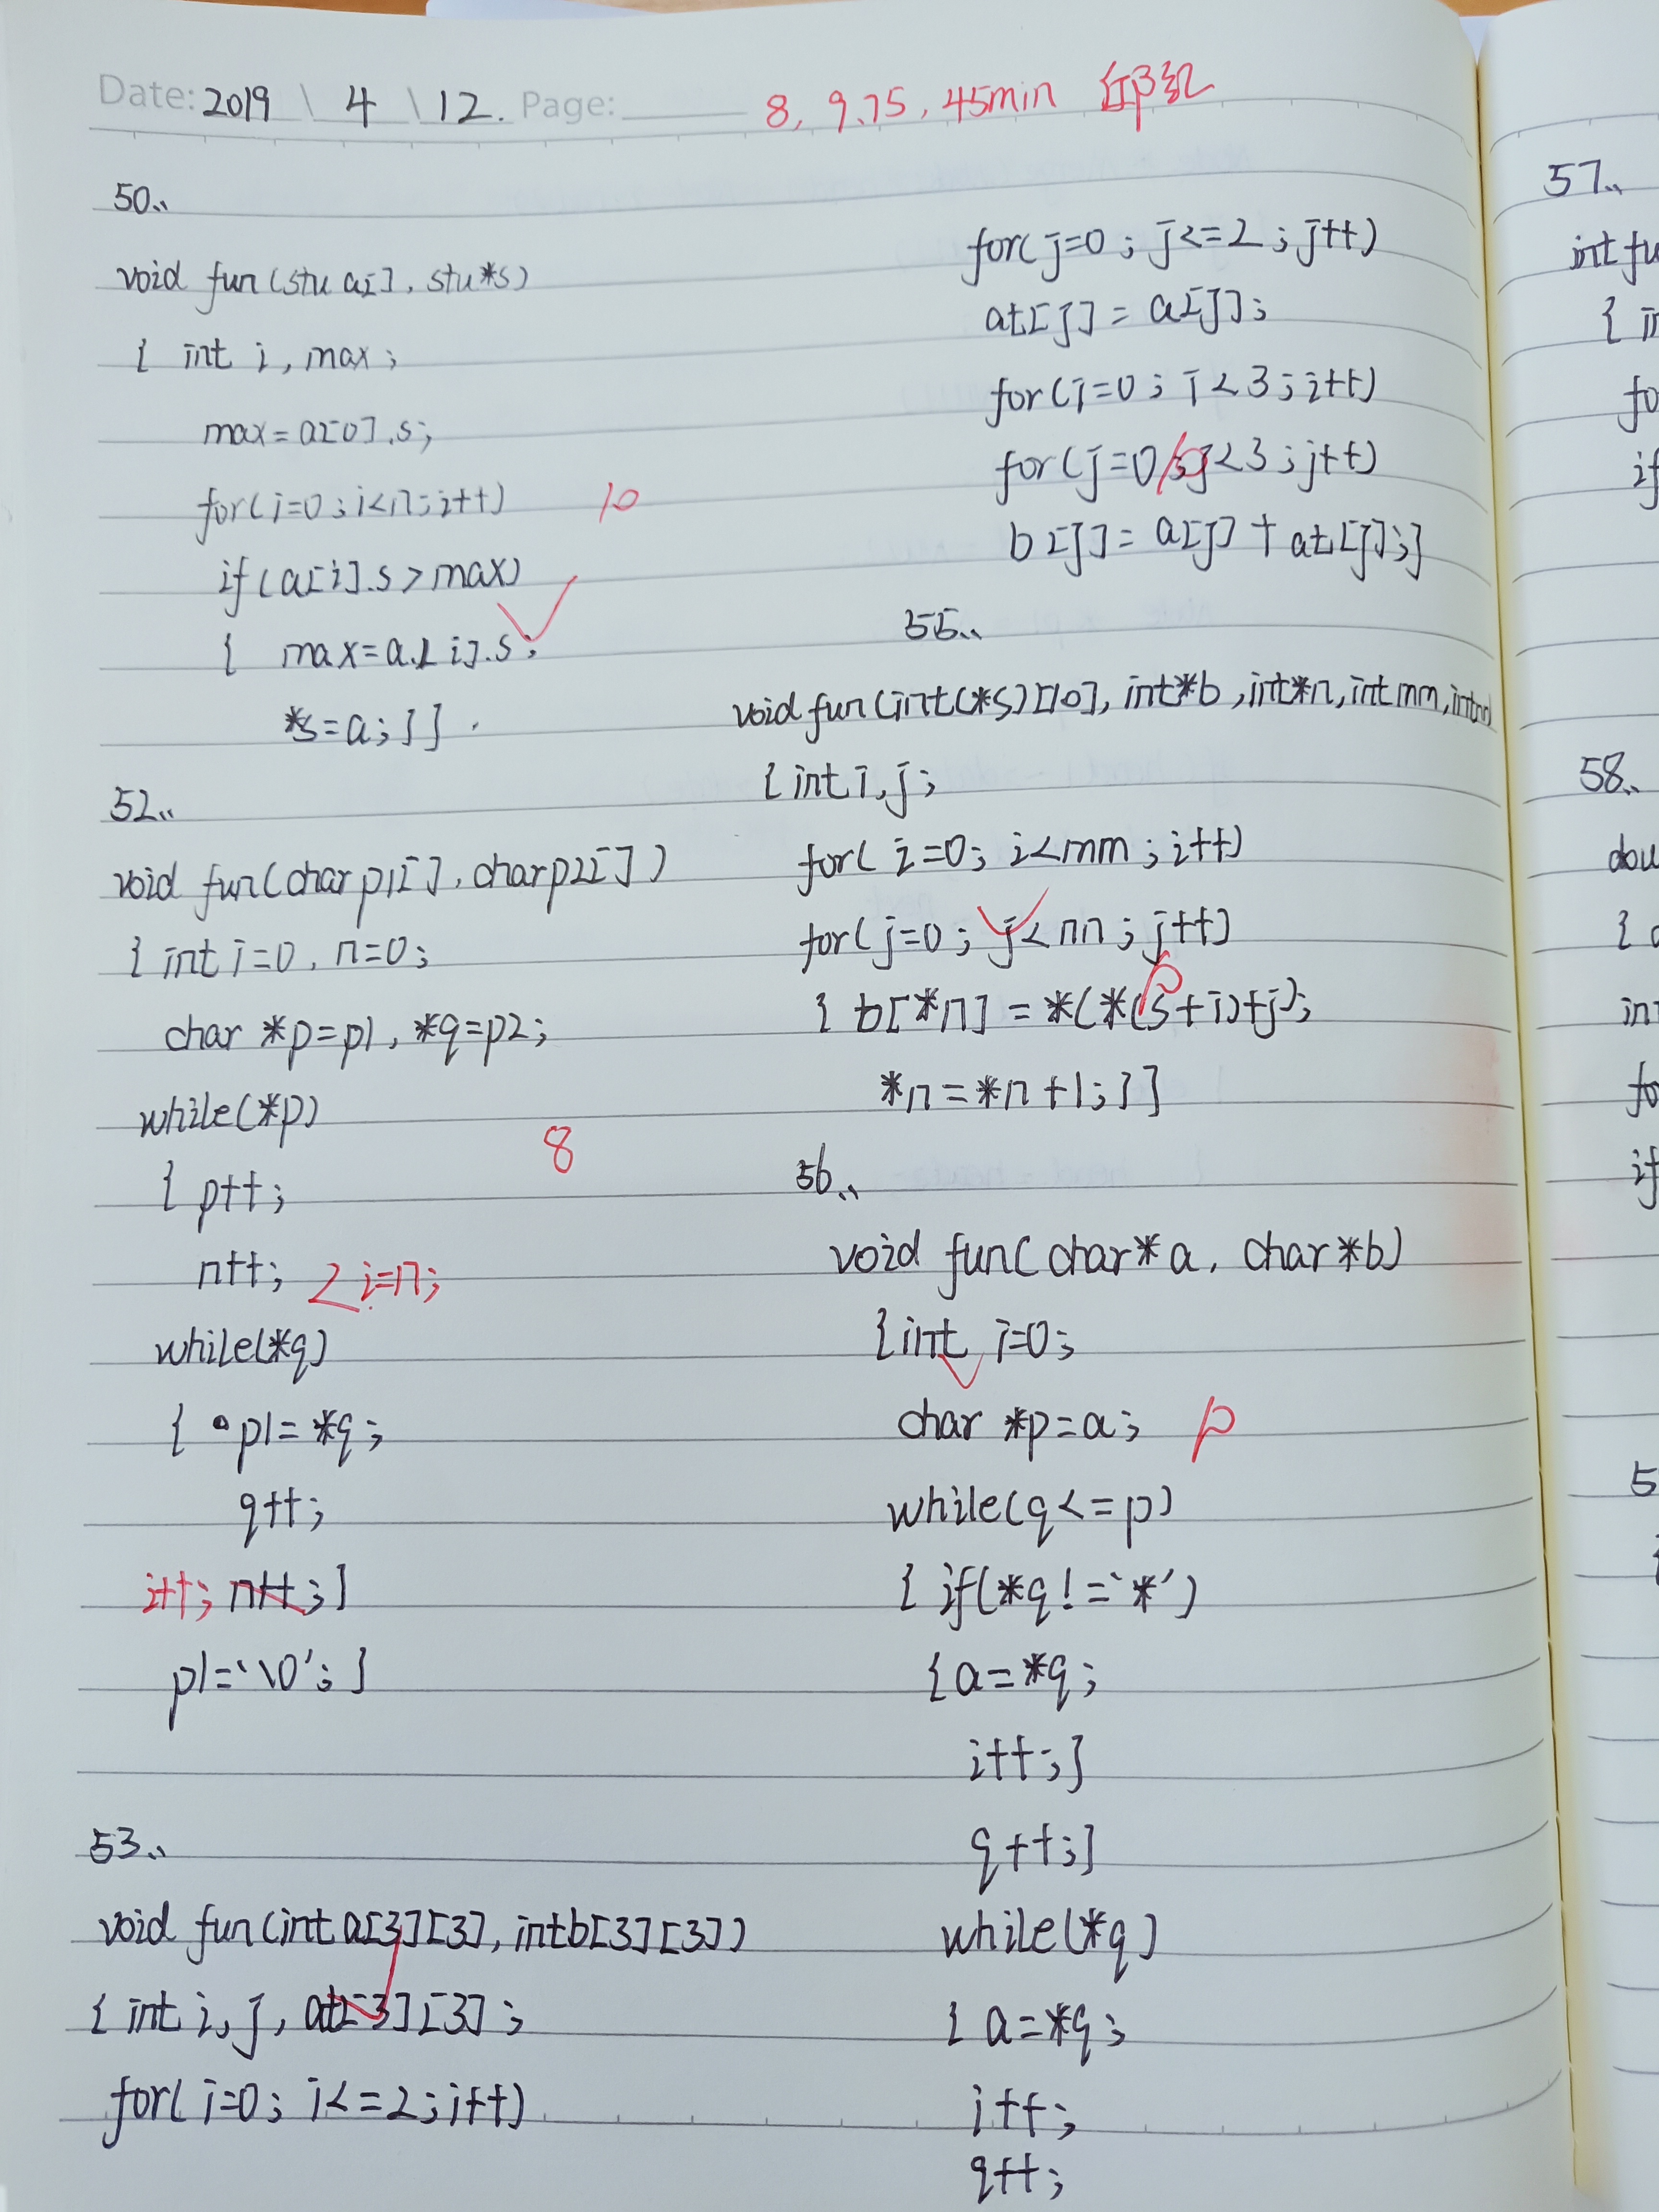 Date: 2019 \ 4 \ 12. Page:
8, 9.75, 45min
50、
void fun(stu a[], stu*s)
{ int i, max;
max=a[0].s;
for(i=0;i<n;i++)
10
if(a[i].s>max)
{ max=a[i].s;
*s=a;}}
52、
void fun(char p1[], char p2[])
{ int i=0, n=0;
char *p=p1, *q=p2;
while(*p)
{ p++;
8
n++;
i=n;
while(*q)
{ p1=*q;
q++;
i++; n++;}
p1='\0';}
53、
void fun(int a[3][3], int b[3][3])
{ int i, j, at[3][3];
for(i=0; i<=2;i++)
for(j=0; j<=2;j++)
at[j]=a[j];
for(i=0;i<3;i++)
for(j=0;j<3;j++)
10
b[j]=a[j]+at[j];}
55、
void fun(int(*s)[10], int*b, int*n, int mm, int nn)
{int i,j;
for(i=0; i<mm;i++)
for(j=0; j<nn; j++)
{ b[*n]=*(*(s+i)+j);
*n=*n+1;}}
56、
void fun(char*a, char*b)
{int i=0;
char *p=a;
while(q<=p)
{ if(*q!='*')
{a=*q;
i++;}
q++;}
while(*q)
{ a=*q;
i++;
q++;
57、
int fu
{ in
fo
if
58、
dou
{ d
int
fo
if
5